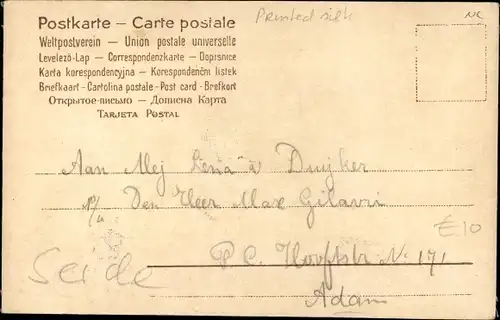 Postkarte – Carte postale
Weltpostverein – Union postale universelle
Levelező-Lap – Correspondenzkarte – Dopisnice
Karta korespondencyjna – Korespondenční lístek
Briefkaart – Cartolina postale – Post card – Brefkort
Открытое письмо – Дописна Карта
Tarjeta Postal
Printed silk
NL
Aan Mej Lena v Duijker
p/a Den Heer Max
£10
P. C. Hooftstr No 171
Seide
Adam